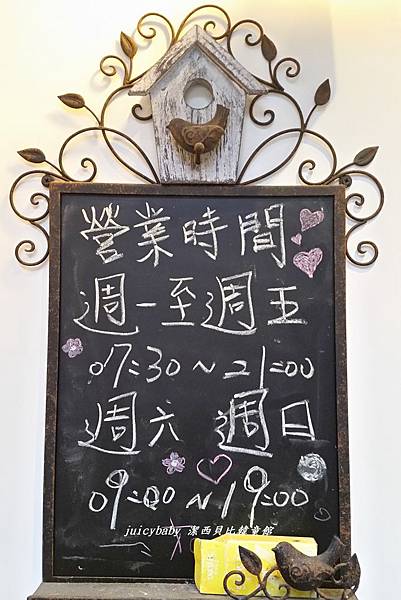 營業時間
週一至週五
07:30~21:00
週六 週日
09:00~19:00
juicybaby 潔西貝比韓童館